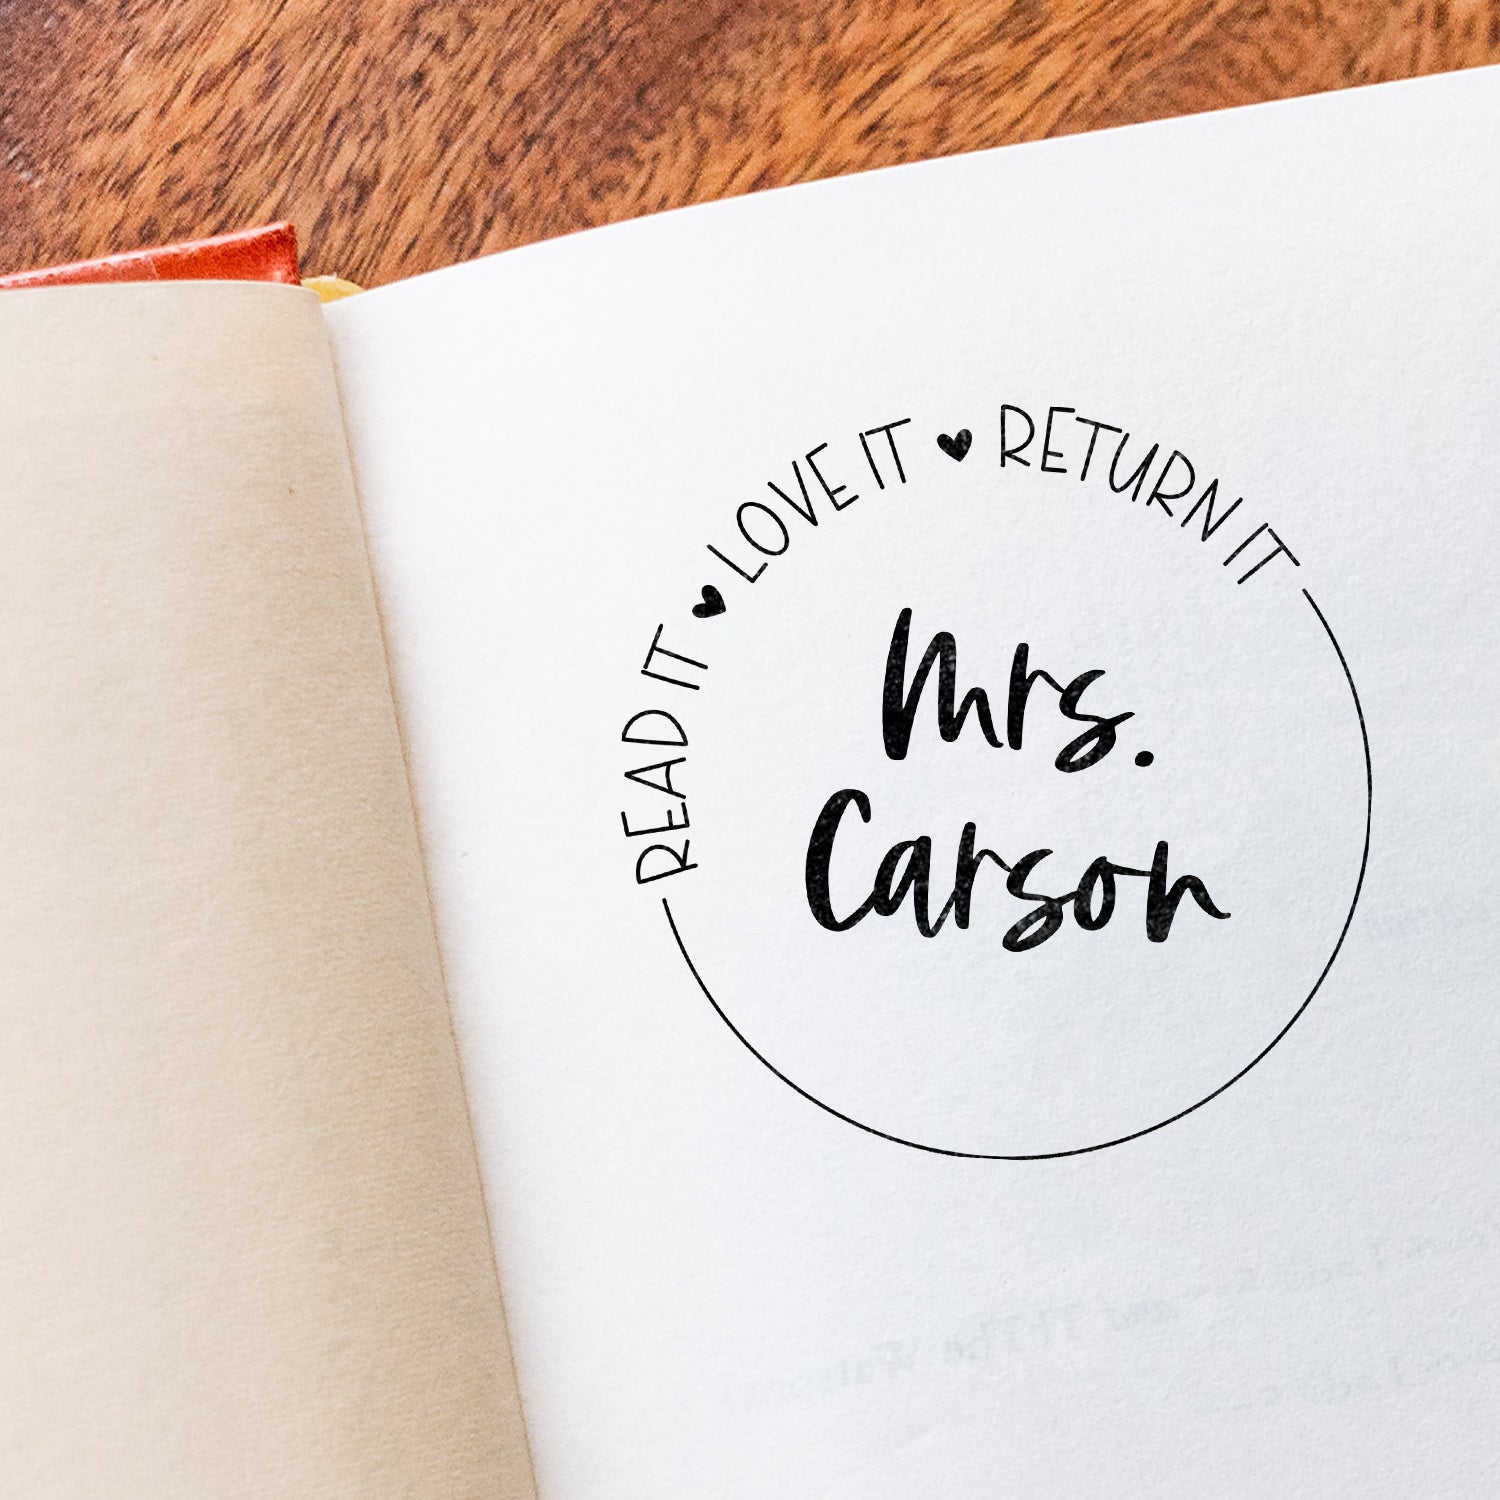 READ IT ♥ LOVE IT ♥ RETURN IT
Mrs.
Carson